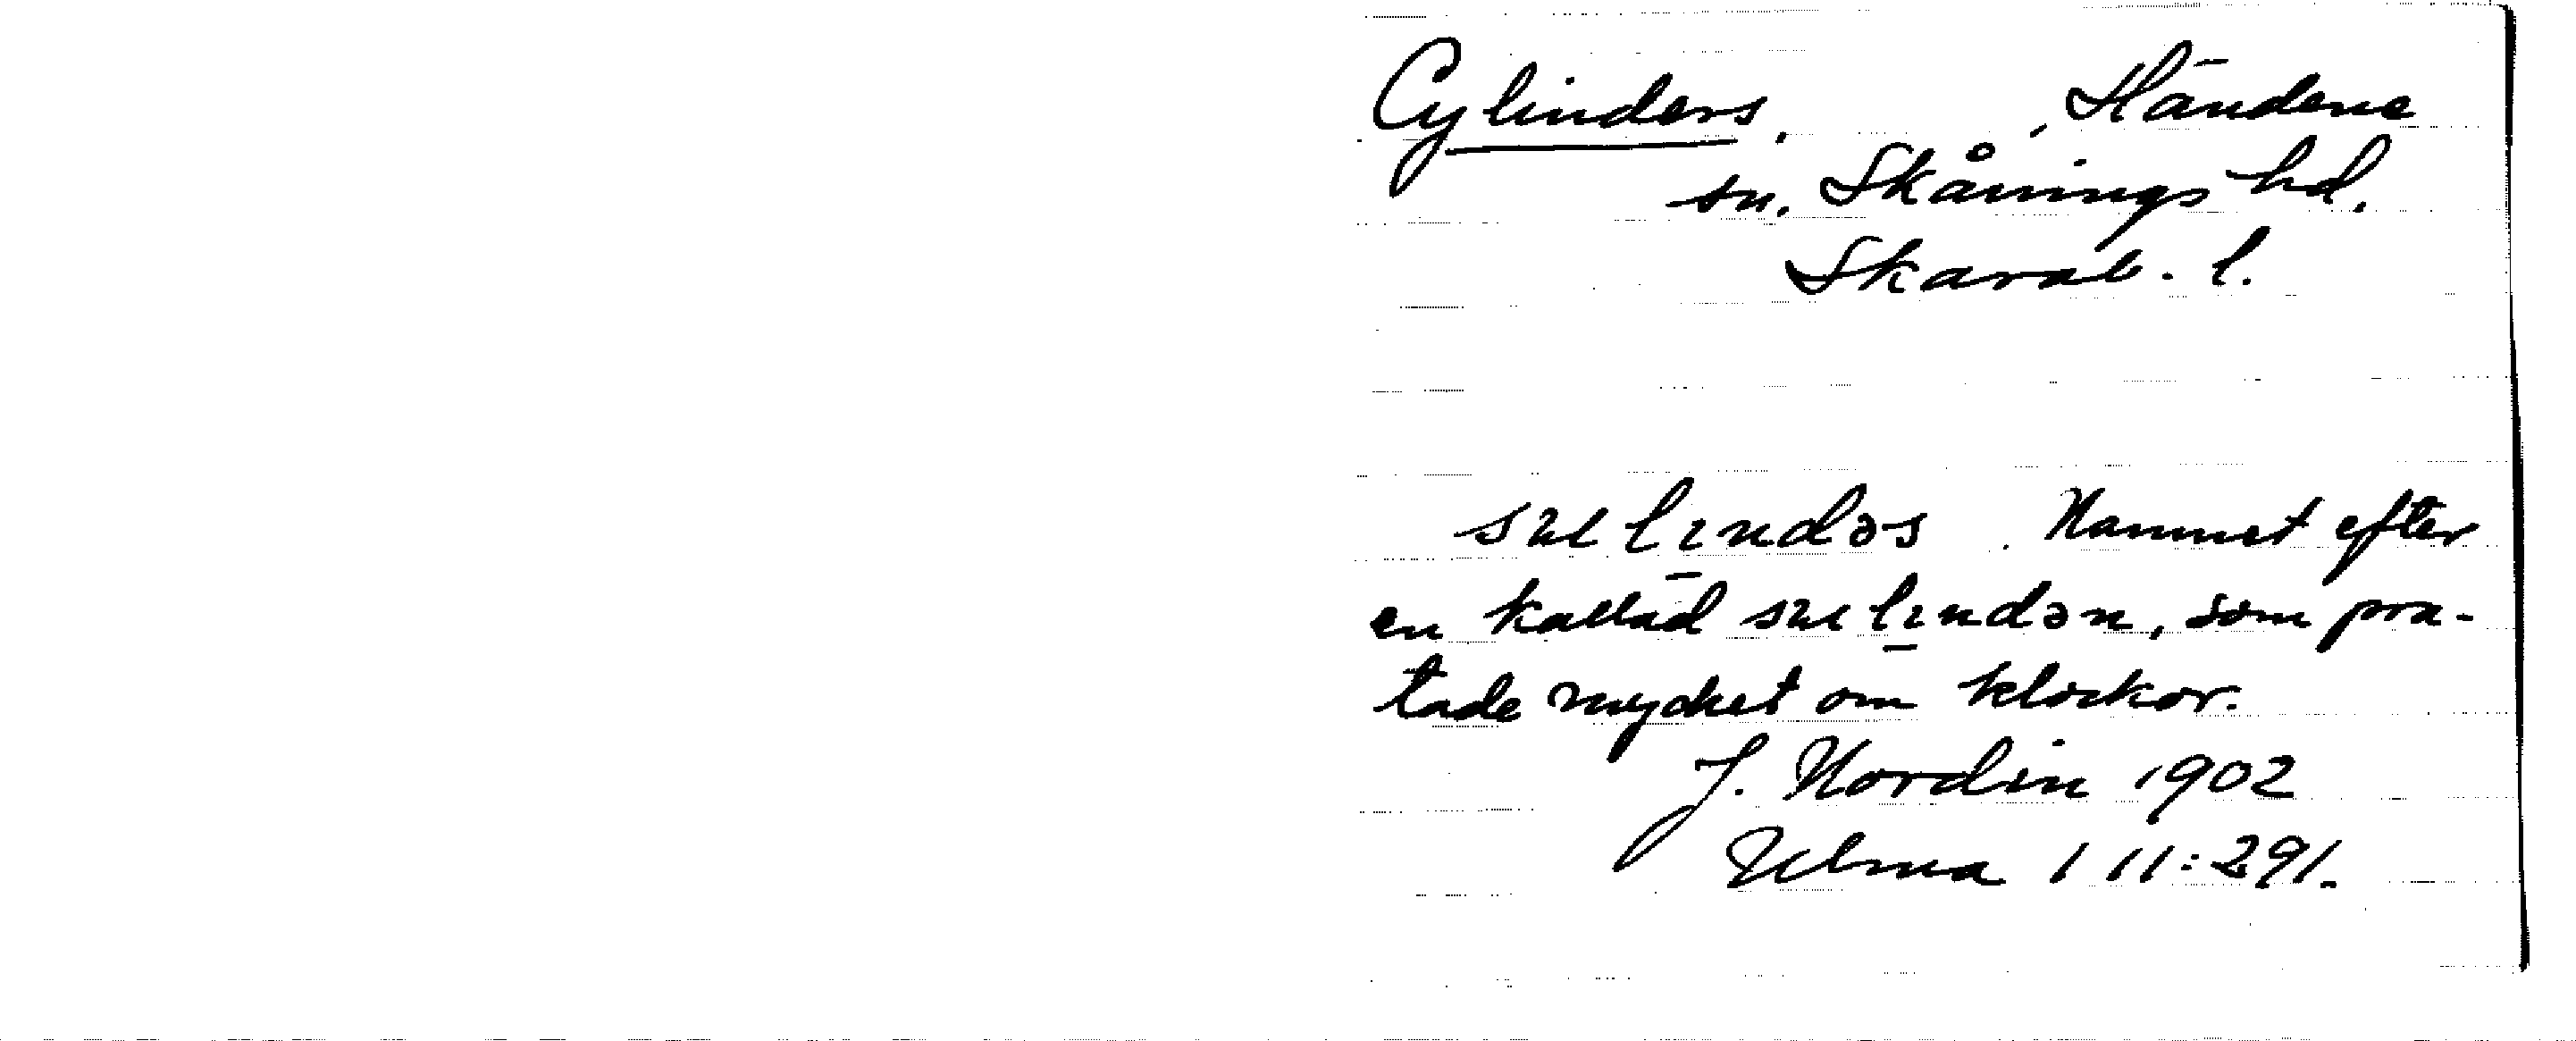 Cylinders. , Händene
sn. Skånings hd.
Skarab. l.
Namnet efter
en kallad, som pra-
tade mycket om klockor.
J. Nordin 1902
Ulma 111:291.